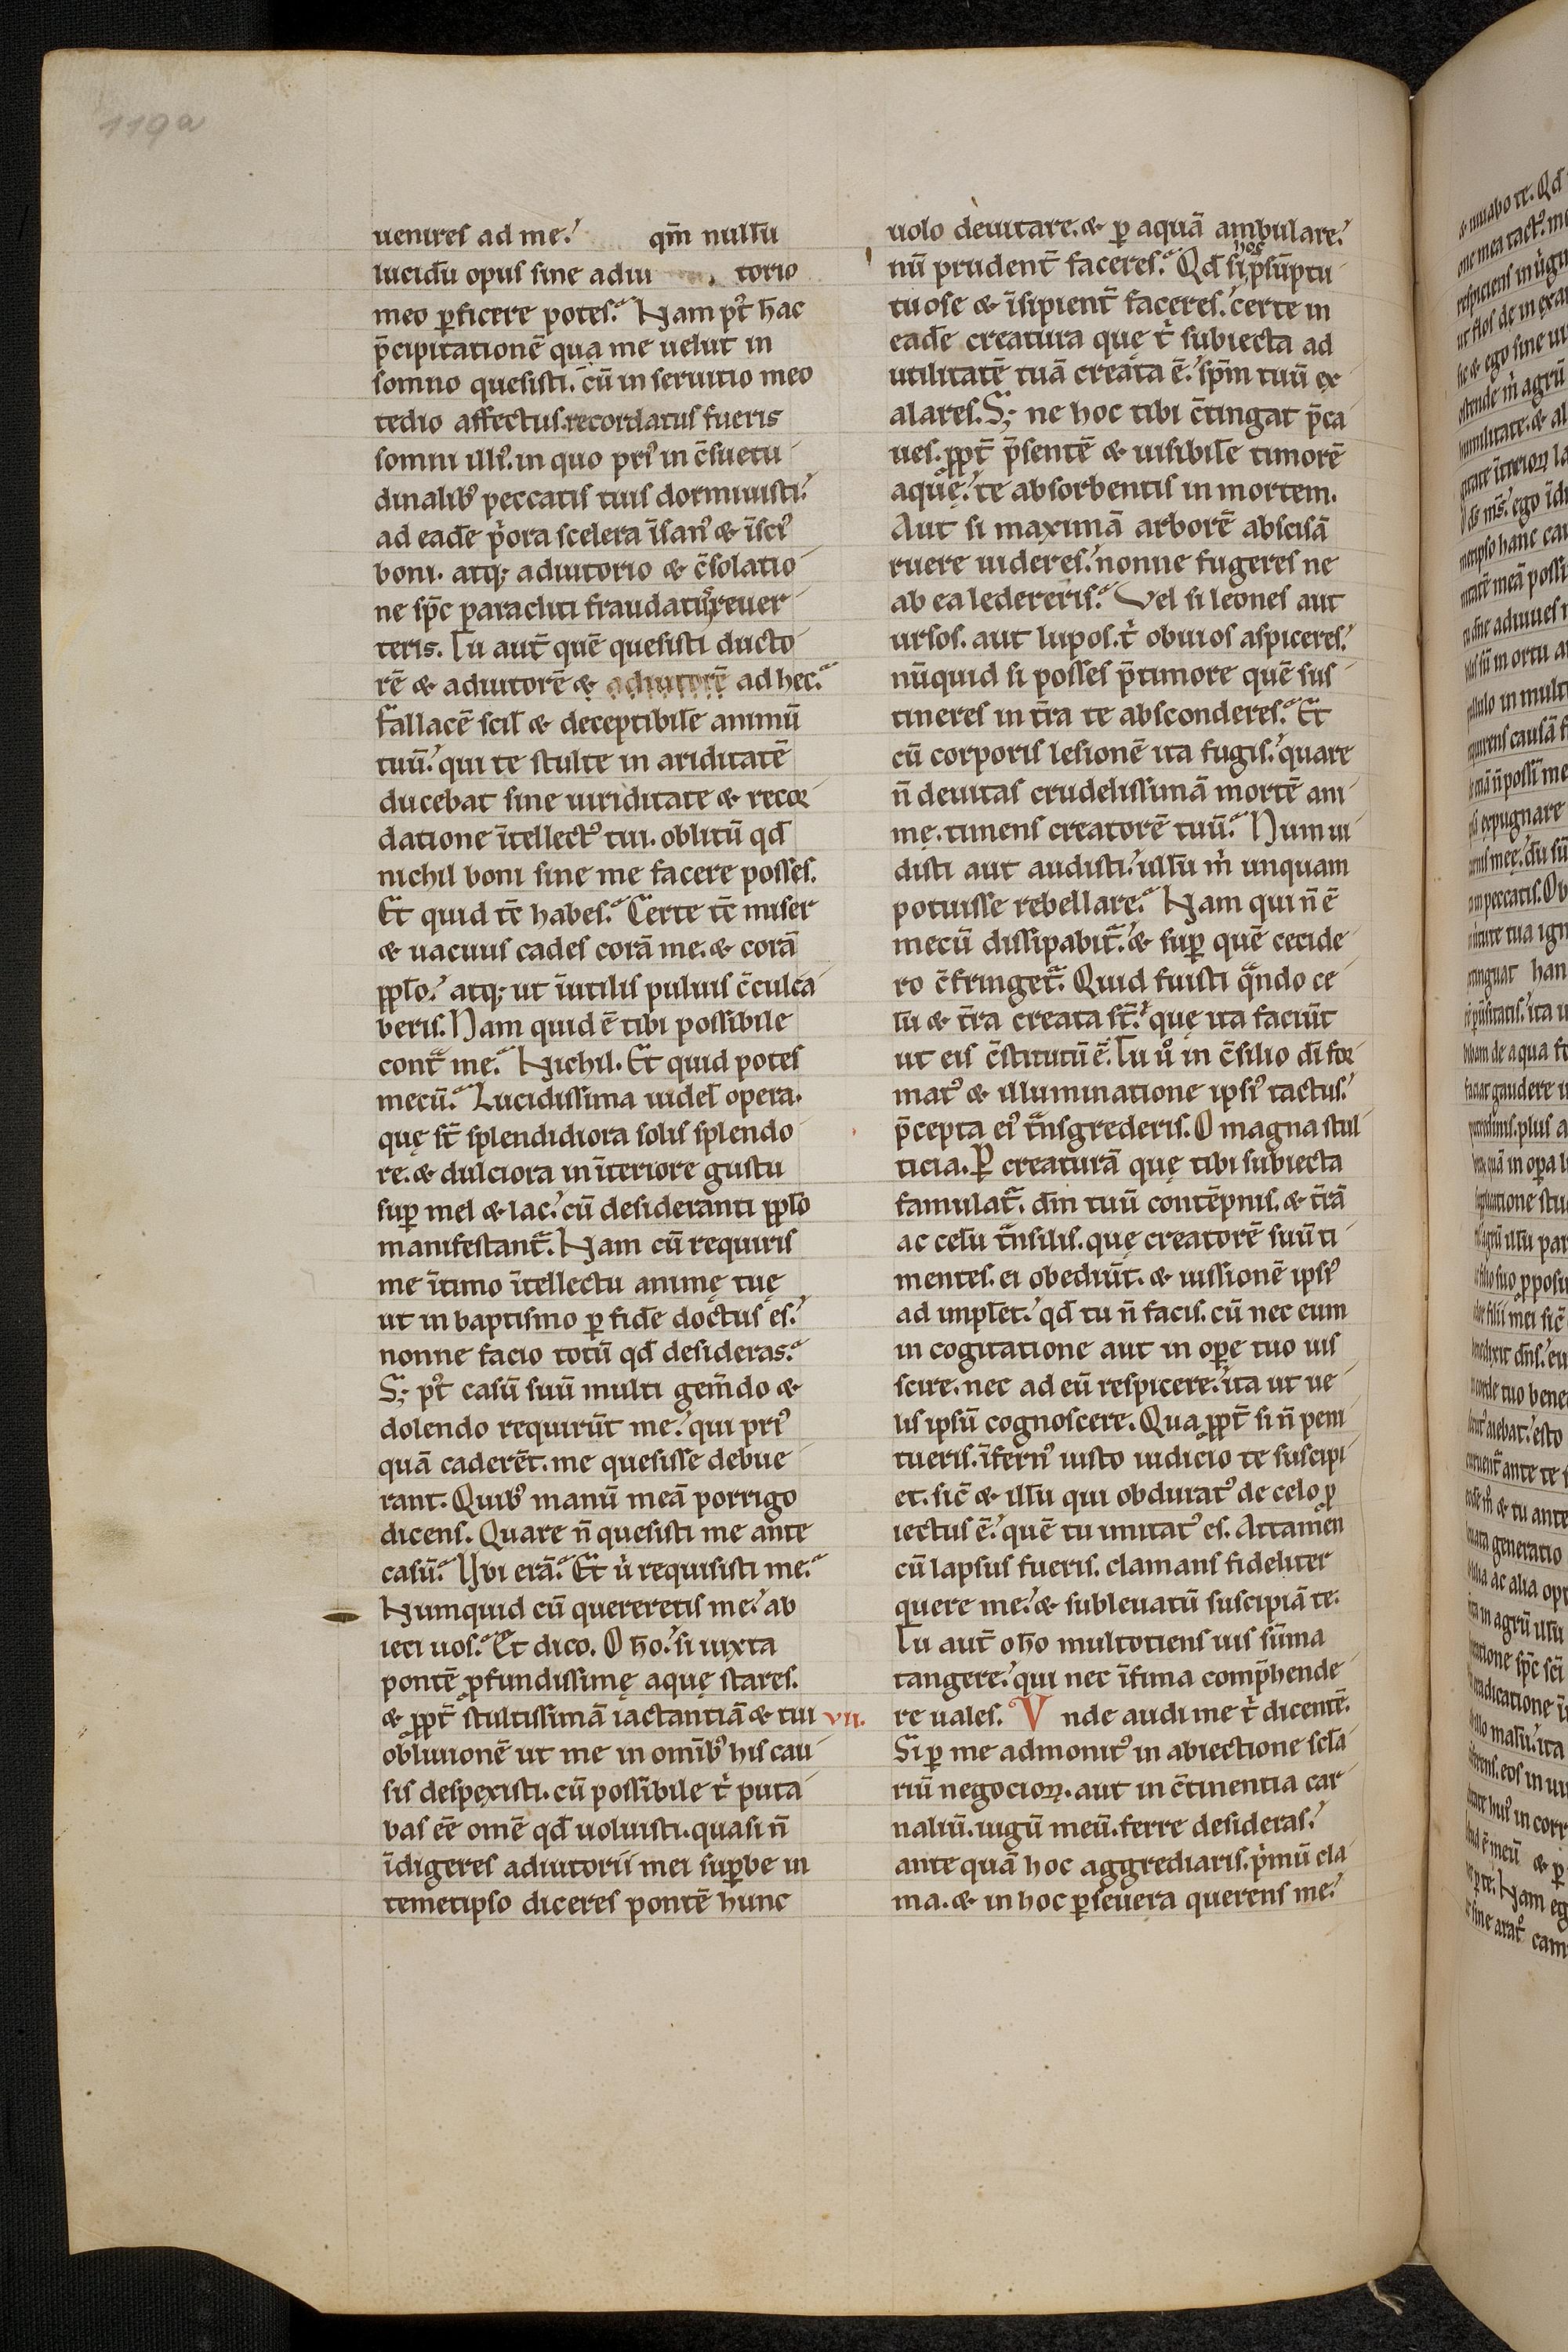 119a
uenires ad me. qm̄ nullū
lucidū opus sine adiu torio
meo ꝑficere potes. Nam pꝰt hāc
p̄cipitationē qua me uelut in
somno quesisti. cū in seruitio meo
tedio affectus. recordatus fueris
somni illiꝰ. in quo priꝰ in c̄suetu
dinalibꝰ peccatis tuis dormiuisti.
ad eadē p̍ora scelera īsanꝰ & īsciꝰ
boni. atq; adiutorio & c̄solatio
ne sp̄c paracliti fraudatꝰ reuer
teris. Tu aut̄ quē quesisti ducto
rē & adiutorē & adiutorē ad hec.
Fallacē scil̄ & deceptibilē animū
tuū. qui te stulte in ariditatē
ducebat sine uiriditate & recor
datione ītellectꝰ tui. oblitū qd̄
nichil boni sine me facere posses.
Et quid tē habes. Certe tē miser
& uacuus cades corā me. & corā
ppl̄o. atq; ut īutilis puluis c̄culca
beris. Nam quid ē tibi possibile
cont̄ me. Nichil. Et quid potes
mecū. Lucidissima uidel̄ opera.
quę st̄ splendidiora solis splendo
re. & dulciora in īteriore gustu
suꝑ mel & lac. cū desideranti ppl̄o
manifestant̄. Nam cū requiris
me ītimo ītellectu animę tuę
ut in baptismo ꝑ fidē doctus es.
nonne facio totū qd̄ desideras.
S; pꝰt casū suū multi gem̄do &
dolendo requirūt me. qui priꝰ
quā caderēt. me quesisse debue
rant. Quibꝰ manū meā porrigo
dicens. Quare n̄ quesisti me ante
casū. Vbi erā. Et u̍ requisisti me.
Numquid cū quereretis me. ab
ieci uos. Et dico. O hō. si iuxta
pontē ꝓfundissimę aquę stares.
& ꝓpt̄ stultissimā iactantiā & tui
obliuionē ut me in omībꝰ his cau
sis despexisti. cū possibile t̍ puta
bas eē omē qd̄ uoluisti. quasi n̄
īdigeres adiutorii mei suꝑbe in
temetipso diceres pontē hunc
uolo deuitare. & ꝑ aquā ambulare.
nū prudent̄ faceres. Qd̄ si hoc p̄sūptu
tuose & īsipient̄ faceres. certe in
eadē creatura quę t̍ subiecta ad
utilitatē tuā creata ē. sp̄m tuū ex
alares. S; ne hoc tibi c̄tingat p̄ca
ues. ꝓpt̄ p̄sentē & uisibilē timorē
aquę. te absorbentis in mortem.
Aut si maximā arborē abscisā
ruere uideres. nonne fugeres ne
ab ea ledereris. Vel si leones aut
ursos. aut lupos. t̍ obuios aspiceres.
nūquid si posses p̄ timore quē sus
tineres in t̄ra te absconderes. Et
cū corporis lesionē ita fugis. quare
n̄ deuitas crudelissimā mortē ani
mę. timens creatorē tuū. Num ui
disti aut audisti. ullū m̍ unquam
potuisse rebellare. Nam qui n̄ ē
mecū dissipabit̄. & suꝑ quē cecide
ro c̄fringet̄. Quid fuisti qͣndo ce
lū & t̄ra creata st̄. quę ita faciūt
ut eis c̄stitutū ē. Tu uͦ in c̄silio dī for
matꝰ & illuminatione ipsiꝰ tactus.
p̄cepta eiꝰ tͣnsgrederis. O magna stul
ticia. Ꝑ creaturā quę tibi subiecta
famulat̄. dm̄ tuū contēpnis. & t̄rā
ac celū tͣnsilis. quę creatorē suū ti
mentes. ei obediūt. & iussionē ipsiꝰ
ad implēt. qd̄ tu n̄ facis. cū nec eum
in cogitatione aut in oꝑe tuo uis
scire. nec ad eū respicere. ita ut ue
lis ipsū cognoscere. Qua ꝓpt̄ si n̄ peni
tueris. īfernꝰ iusto iudicio te suscipi
et. sic̄ & illū qui obduratꝰ de celo ꝓ
iectus ē. quē tu imitatꝰ es. Attamen
cū lapsus fueris. clamans fideliter
quere me. & subleuatū suscipiā te.
Tu aut̄ o hō multotiens uis sūma
tangere. qui nec īfima comp̄hende
vii.
re uales. Vnde audi me t̍ dicentē.
Si ꝑ me admonitꝰ in abiectione scl̄a
riū negocioꝝ. aut in c̄tinentia car
naliū. iugū meū. ferre desideras.
ante quā hoc aggrediaris. p̍mū cla
ma. & in hoc ꝑseuera querens me.